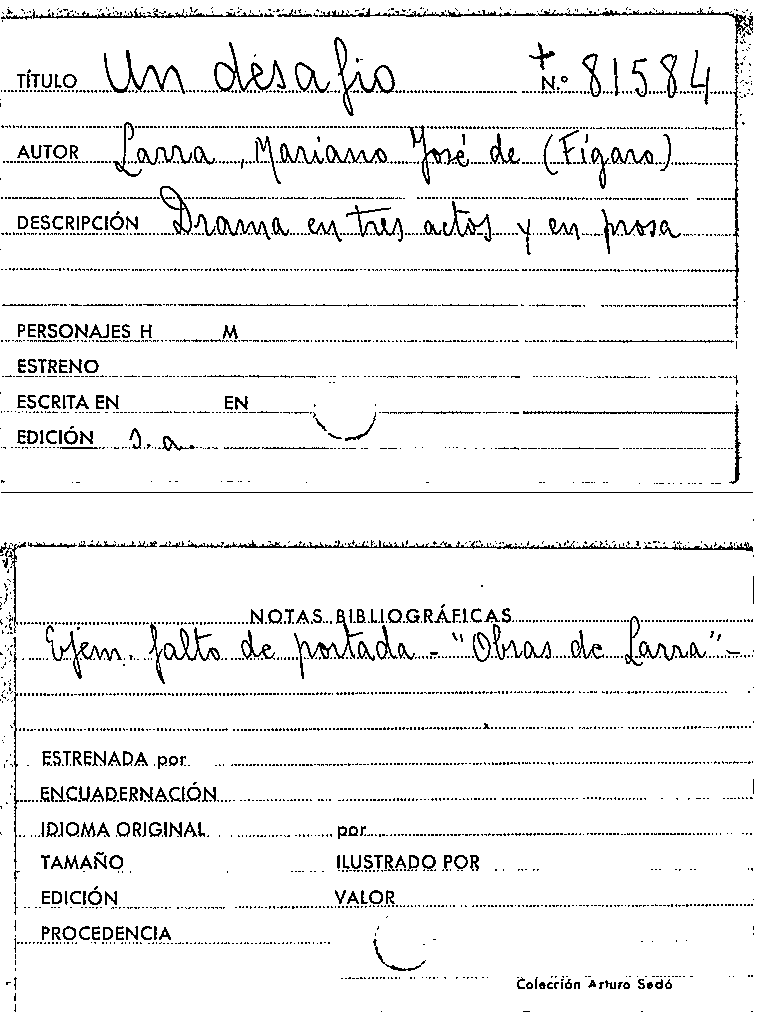 TÍTULO Un desafio + N.º 81584
AUTOR Larra, Mariano José de (Fígaro)
DESCRIPCIÓN Drama en tres actos y en prosa
PERSONAJES H M
ESTRENO
ESCRITA EN EN
EDICIÓN s.a.
NOTAS BIBLIOGRÁFICAS
Ejem. falto de portada - "Obras de Larra" -
ESTRENADA por
ENCUADERNACIÓN
IDIOMA ORIGINAL por
TAMAÑO ILUSTRADO POR
EDICIÓN VALOR
PROCEDENCIA
Colección Arturo Sedó